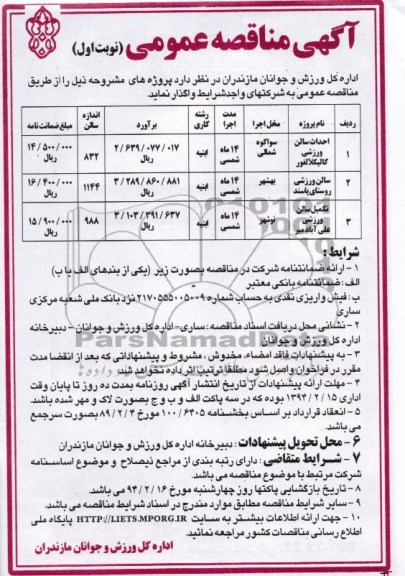 آگهی مناقصه عمومی (نوبت اول)
اداره کل ورزش و جوانان مازندران در نظر دارد پروژه های مشروحه ذیل را از طریق
مناقصه عمومی به شرکتهای واجدشرایط واگذار نماید.
ردیف نام پروژه محل اجرا مدت اجرا رشته کاری برآورد اندازه سالن مبلغ ضمانت نامه
۱ احداث سالن ورزشی کالیکلا لفور سوادکوه شمالی ۱۴ ماه شمسی ابنیه ۲/۶۳۹/۰۷۷/۰۱۷ ریال ۸۳۲ ۱۴/۵۰۰/۰۰۰ ریال
۲ سالن ورزشی روستای پاسند بهشهر ۱۴ ماه شمسی ابنیه ۳/۲۸۹/۸۶۰/۸۸۱ ریال ۱۱۴۴ ۱۶/۴۰۰/۰۰۰ ریال
۳ تکمیل سالن ورزشی علی آباد میر نوشهر ۱۴ ماه شمسی ابنیه ۳/۱۰۳/۳۹۱/۶۳۷ ریال ۹۸۸ ۱۵/۹۰۰/۰۰۰ ریال
شرایط :
۱ - ارائه ضمانتنامه شرکت در مناقصه بصورت زیر (یکی از بندهای الف یا ب)
الف : ضمانتنامه بانکی معتبر
ب : فیش واریزی نقدی به حساب شماره ۲۱۷۰۵۵۵۰۰۵۰۰۹ نزد بانک ملی شعبه مرکزی
ساری
۲ - نشانی محل دریافت اسناد مناقصه : ساری - اداره کل ورزش و جوانان - دبیرخانه
اداره کل ورزش و جوانان
۳ - به پیشنهادات فاقد امضاء، مخدوش ، مشروط و پیشنهاداتی که بعد از انقضا مدت
مقرر در فراخوان واصل شود مطلقا ترتیب اثر داده نخواهد شد.
۴ - مهلت ارائه پیشنهادات از تاریخ انتشار آگهی روزنامه بمدت ده روز تا پایان وقت
اداری ۱۵ / ۲ / ۱۳۹۴ بوده که در سه پاکت الف و ب و ج بصورت لاک و مهر شده باشد.
۵ - انعقاد قرارداد بر اساس بخشنامه ۶۴۰۵ / ۱۰۰ مورخ ۴ / ۲ / ۸۹ بصورت سرجمع
می باشد.
۶ - محل تحویل پیشنهادات : دبیرخانه اداره کل ورزش و جوانان مازندران
۷ - شرایط متقاضی : دارای رتبه بندی از مراجع ذیصلاح و موضوع اساسنامه
شرکت مرتبط با موضوع مناقصه می باشد.
۸ - تاریخ بازگشایی پاکتها روز چهارشنبه مورخ ۱۶ / ۲ / ۹۴ می باشد.
۹ - سایر شرایط مناقصه مطابق موارد مندرج در اسناد شرایط مناقصه می باشد.
۱۰ - جهت ارائه اطلاعات بیشتر به سایت HTTP://IETS.MPORG.IR پایگاه ملی
اطلاع رسانی مناقصات کشور مراجعه نمائید.
اداره کل ورزش و جوانان مازندران
ParsNamadData